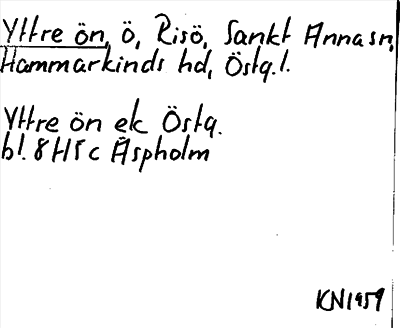 Yttre ön, ö, Risö, Sankt Anna sn,
Hammarkinds hd, Östg.l.
Yttre ön ek Östg.
bl. 8 H 5 c Aspholm
KN 1959